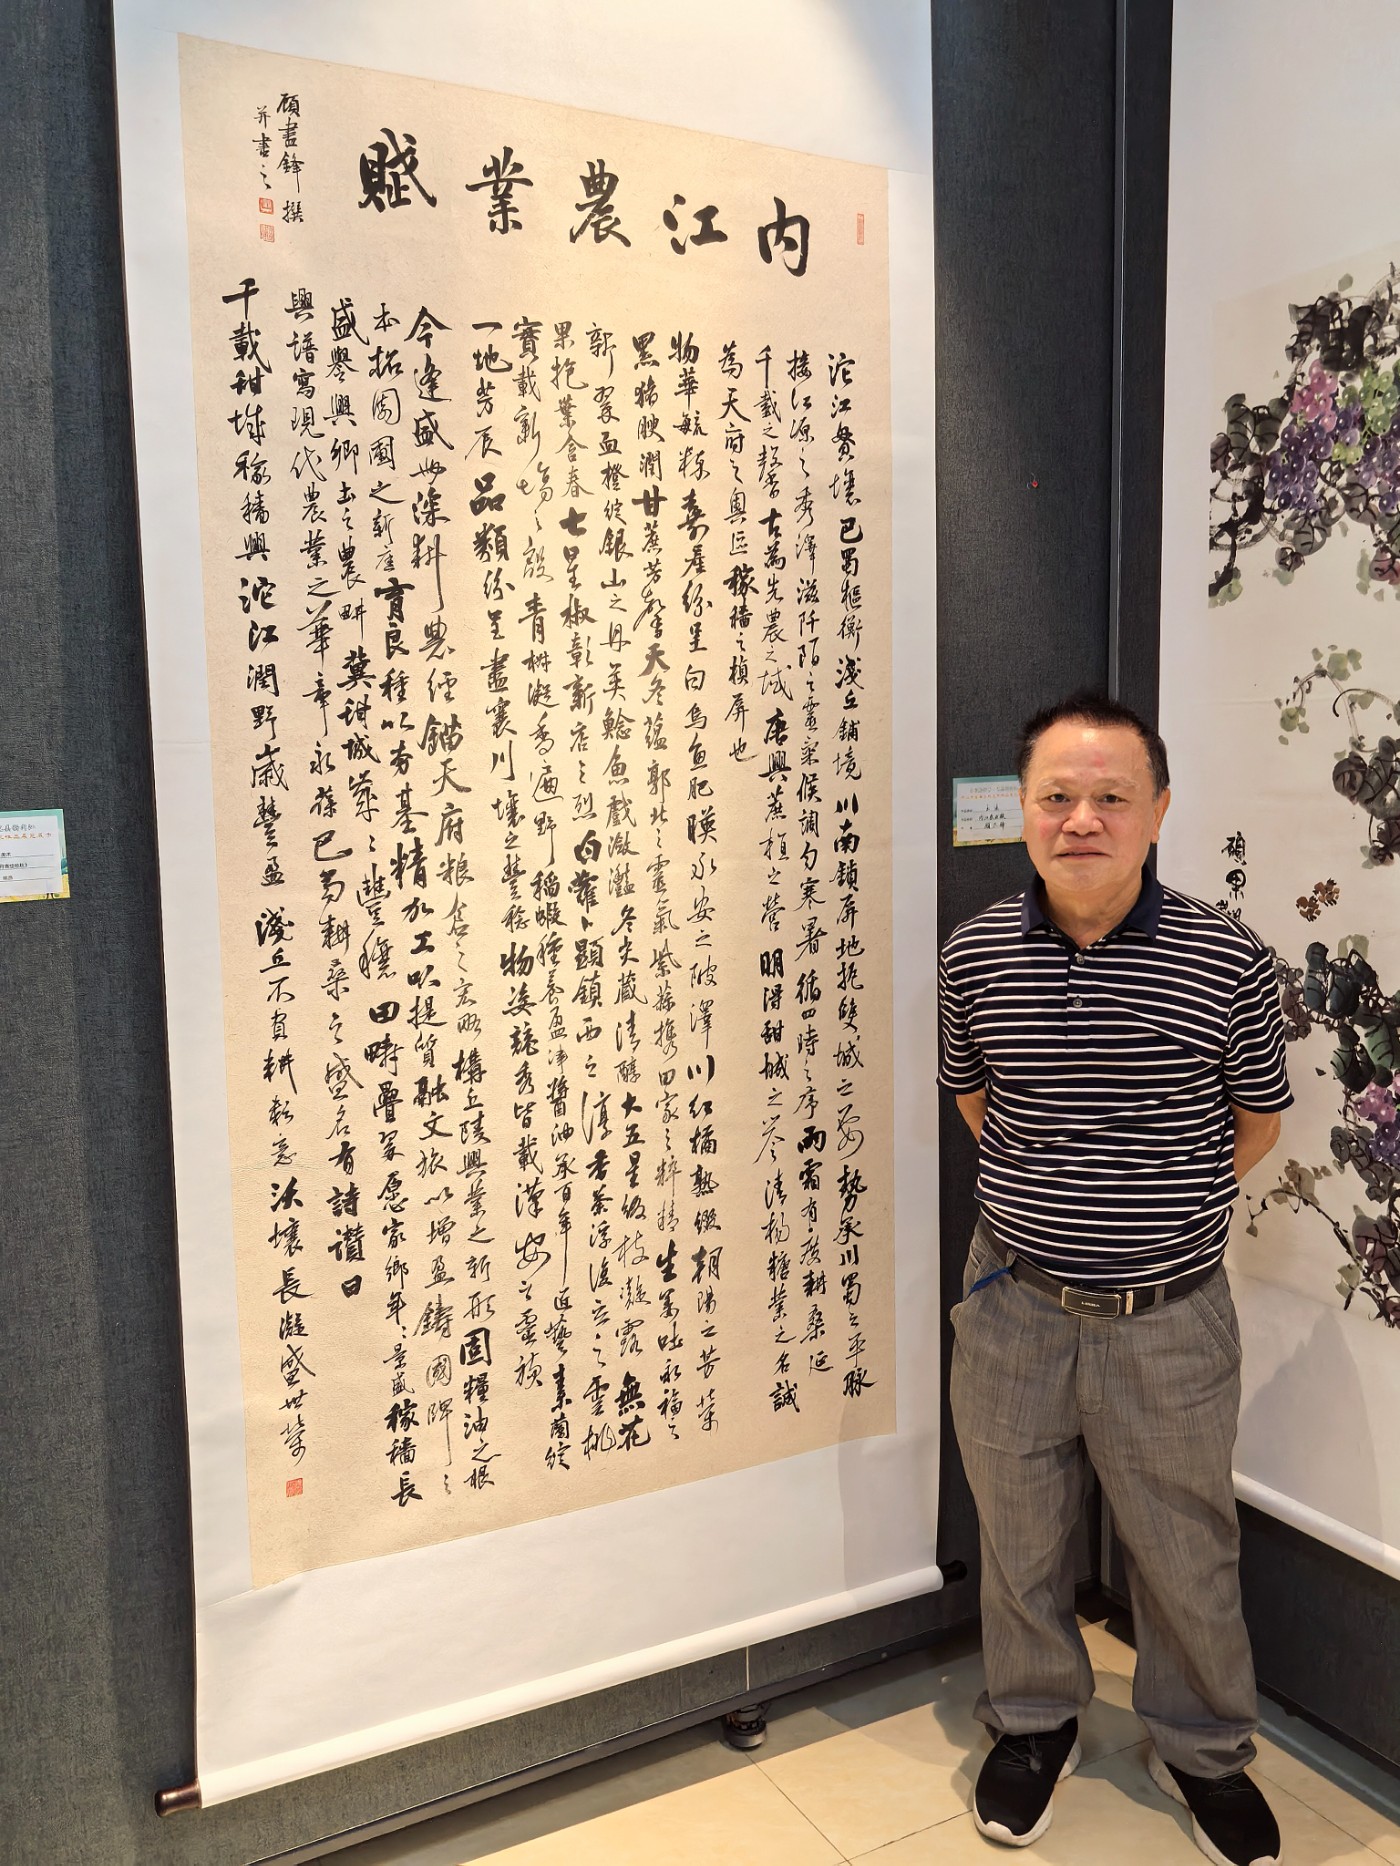 内江農業賦
沱江奥壤巴蜀樞衡淺丘鋪境川南鎖屏地扼雙城之要勢承川蜀之平脈
接江源之秀澤滋阡陌之靈氣候調勻寒暑循四時之序雨霜有度耕桑延
千載之馨古為先農之域唐興蔗植之營明得甜城之譽清楊糖業之名誠
為天府之奧區稼穡之楨屏也
物華毓粹嘉產紛呈白烏魚肥暎永安之陂澤川紅橘熟綴朝陽之芳華
黑豬腴潤甘蔗芳馨天冬蘊郭北之靈氣紫蘇攜田家之粹精生薑吐永福之
新翠血橙綻銀山之丹英鯰魚戲瀲灩冬尖藏清醇大五星級枝凝露無花
果抱葉含春七星椒彰新店之烈白蘿卜顯鎮西之淳香茶浮復立之雲桃
實載新場之殷青椒凝香遍野稻蝦種養盈津醬油承百年匠藝素蘭綻
一地芳辰品類紛呈盡襄川壤之豐稔物姿競秀皆載漢安之靈禎
今逢盛世深耕農經錨天府粮倉之宏略構丘陵興業之新形固糧油之根
本拓園圃之新產育良種以夯基精加工以提質融文旅以增盈鑄國牌之
盛譽興鄉土之農畊冀甜城歲之豐穰田疇疊翠愿家鄉年之景盛稼穡長
興譜寫現代農業之華章永葆巴蜀耕桑之盛名有詩讚曰
千載甜城稼穡興沱江潤野歲豐盈淺丘不負耕耘意沃壤長凝盛世榮
顾書鋒撰
并書之
碩果